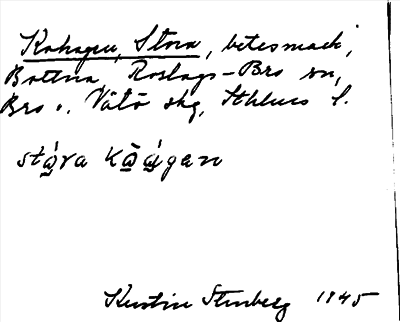 Kohagen, Stora, betesmark,
Bottna, Roslags-Bro sn,
Bro o. Vätö skg, Sthlms l.
stá̱ra kò̱á̱gan
Kerstin Stenberg 1945